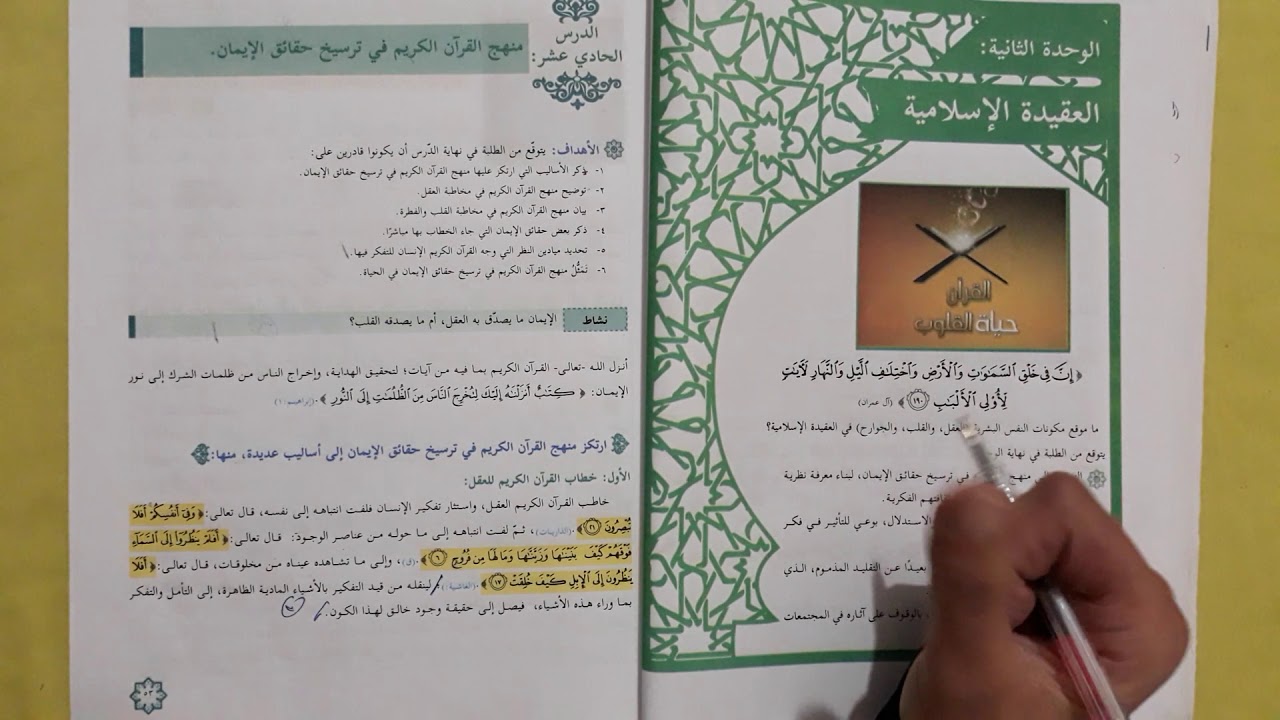 الوحدة الثانية:
العقيدة الإسلامية
القرآن
حياة القلوب
﴿ إِنَّ فِي خَلْقِ السَّمَاوَاتِ وَالْأَرْضِ وَاخْتِلَافِ اللَّيْلِ وَالنَّهَارِ لَآيَاتٍ
لِأُولِي الْأَلْبَابِ ١٩٠ ﴾ (آل عمران)
ما موقع مكونات النفس البشرية (العقل، والقلب، والجوارح) في العقيدة الإسلامية؟
يتوقع من الطلبة في نهاية
في ترسيخ حقائق الإيمان، لبناء معرفة نظرية
الفكرية.
الاستدلال، بوعي للتأثير في فكر
بعيدًا عن التقليد المذموم، الذي
بالوقوف على آثاره في المجتمعات
الدرس
الحادي عشر:
منهج القرآن الكريم في ترسيخ حقائق الإيمان.
الأهداف: يتوقّع من الطلبة في نهاية الدّرس أن يكونوا قادرين على:
١- ذكر الأساليب التي ارتكز عليها منهج القرآن الكريم في ترسيخ حقائق الإيمان.
٢- توضيح منهج القرآن الكريم في مخاطبة العقل.
٣- بيان منهج القرآن الكريم في مخاطبة القلب والفطرة.
٤- ذكر بعض حقائق الإيمان التي جاء الخطاب بها مباشرًا.
٥- تحديد ميادين النظر التي وجه القرآن الكريم الإنسان للتفكر فيها.
٦- تَمَثُّلُ منهج القرآن الكريم في ترسيخ حقائق الإيمان في الحياة.
نشاط الإيمان ما يصدّق به العقل، أم ما يصدقه القلب؟
أنزل الله -تعالى- القرآن الكريم بما فيه من آيات؛ لتحقيق الهداية، وإخراج الناس من ظلمات الشرك إلى نور
الإيمان: ﴿ كِتَابٌ أَنزَلْنَاهُ إِلَيْكَ لِتُخْرِجَ النَّاسَ مِنَ الظُّلُمَاتِ إِلَى النُّورِ ﴾.(إبراهيم:١)
ارتكز منهج القرآن الكريم في ترسيخ حقائق الإيمان إلى أساليب عديدة، منها:
الأول: خطاب القرآن الكريم للعقل:
خاطب القرآن الكريم العقل، واستثار تفكير الإنسان فلفت انتباهه إلى نفسه، قال تعالى: ﴿ وَفِي أَنفُسِكُمْ أَفَلَا
تُبْصِرُونَ ٢١ ﴾.(الذاريات)، ثمّ لفت انتباهه إلى ما حوله من عناصر الوجود: قال تعالى: ﴿ أَفَلَمْ يَنظُرُوا إِلَى السَّمَاءِ
فَوْقَهُمْ كَيْفَ بَنَيْنَاهَا وَزَيَّنَّاهَا وَمَا لَهَا مِن فُرُوجٍ ٦ ﴾.(ق)، وإلى ما تشاهده عيناه من مخلوقات، قال تعالى: ﴿ أَفَلَا
يَنظُرُونَ إِلَى الْإِبِلِ كَيْفَ خُلِقَتْ ١٧ ﴾.(الغاشية)؛ لينقله من قيد التفكير بالأشياء المادية الظاهرة، إلى التأمل والتفكر
بما وراء هذه الأشياء، فيصل إلى حقيقة وجود خالق لهذا الكون.
٥٣